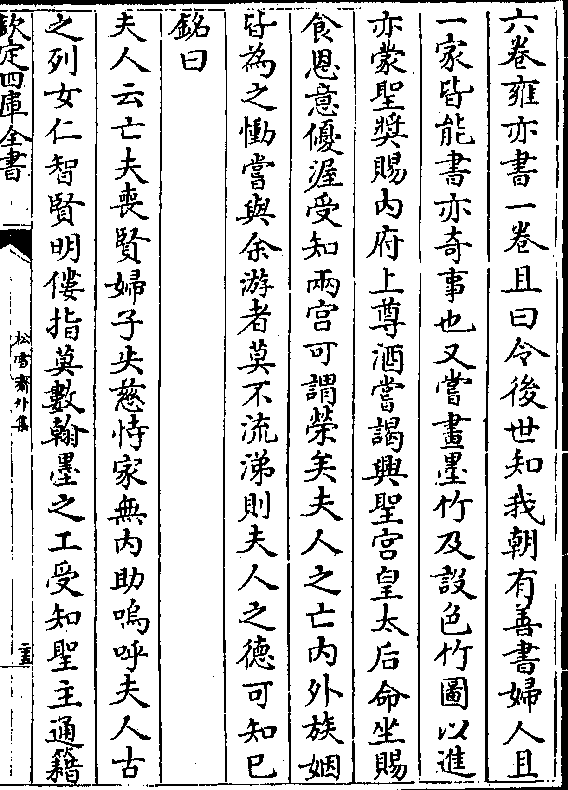 六卷雍亦書一卷且曰令後世知我朝有善書婦人且
一家皆能書亦奇事也又嘗畫墨竹及設色竹圖以進
亦蒙聖奬賜内府上尊酒嘗謁興聖宫皇太后命坐賜
食恩意優渥受知兩宫可謂榮矣夫人之亡内外族姻
皆為之慟嘗與余游者莫不流涕則夫人之德可知已
銘曰
夫人云亡夫喪賢婦子失慈恃家無内助嗚呼夫人古
之列女仁智賢明僂指莫數翰墨之工受知聖主通籍
欽定四庫全書
松雪齋外集
二五